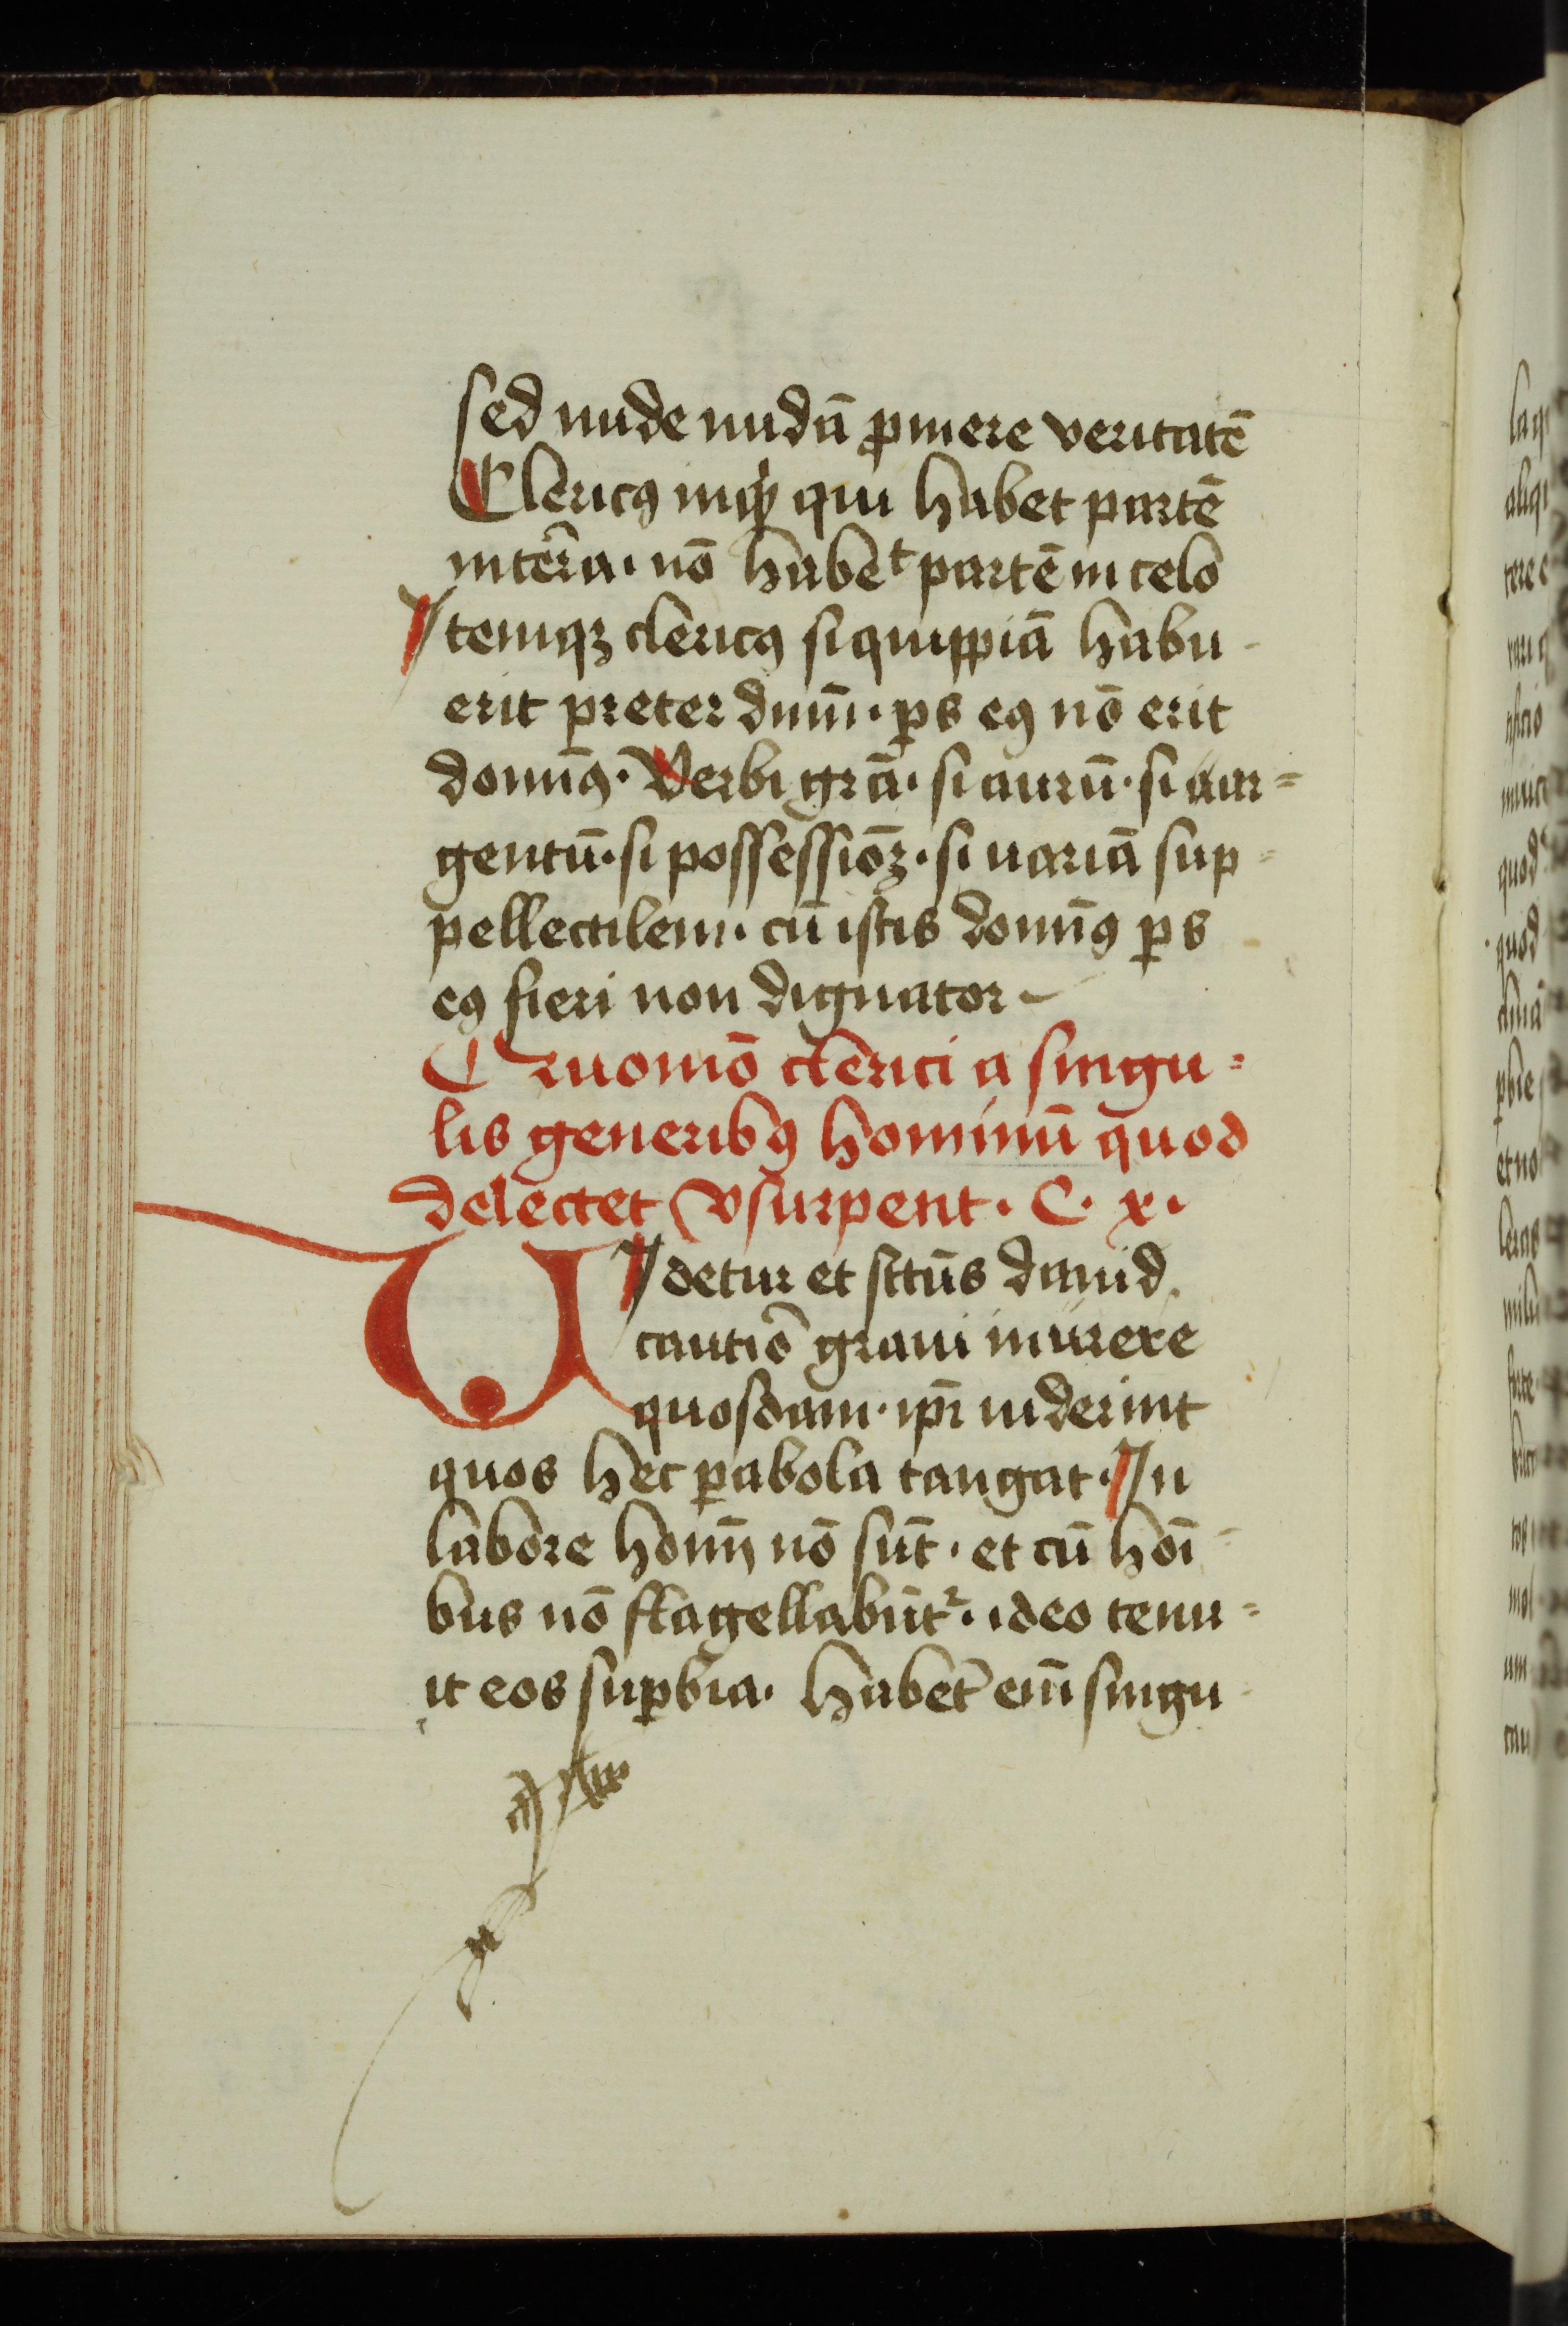 sed nude nudā ꝓmere veritatē
Clericꝯ inqͥt qui habet partē
in teͬra · nō habet partē in celo
Itemqꝫ clericꝯ si quippiā habu-
erit preter dnm̄ · ꝑs eꝯ nō erit
domīꝯ · Verbi grā · si aurū · si aar=
gentū · si possessiōꝫ · si uariā sup-
pellectilem · cū istis domīꝯ ꝑs
eꝯ fieri non dignator
Quomō clerici a singu=
lis generibꝯ hominū quod
delectet vsurpent · C · x ·
VIdetur et sctūs dauid
cautiō graui inurere
quosdam · ip̄i uiderint
quos hec ꝑabola tangat · In
labore homī nō sūt · et cū hōi-
bus nō flagellabūt᷑ · ideo tenu=
it eos suꝑbia · habet eīm singu-